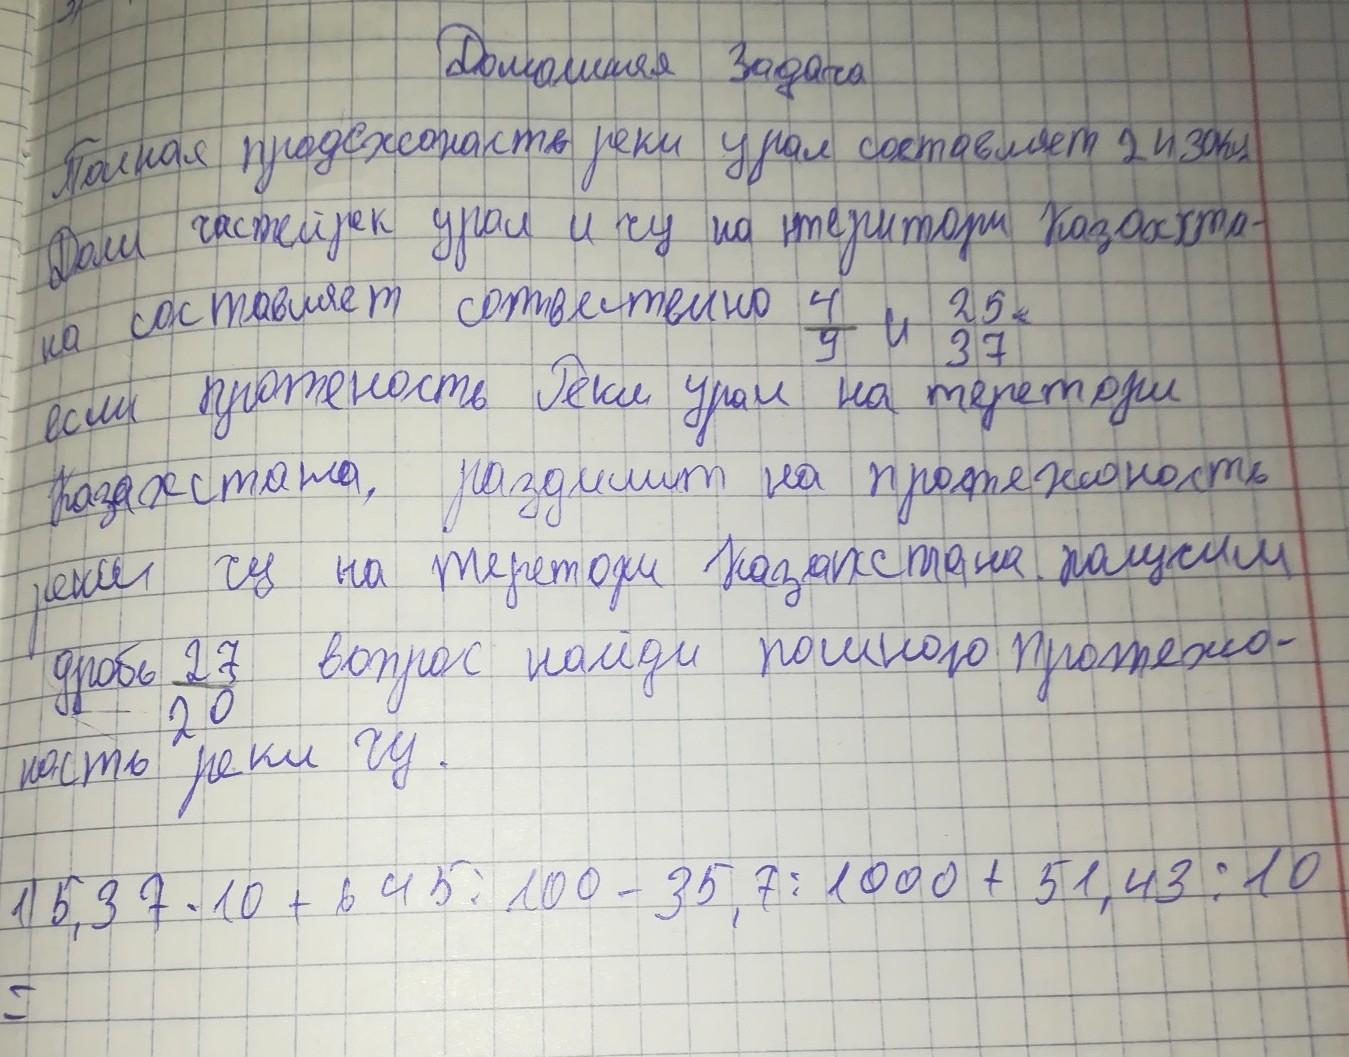 Домашняя Задача
Полная продежсонасть реки урал составляет
Доли частей рек урал и чу на територи Казахста-
на составляет сотвественно 4/9 и 25/37
если протеность Реки урал на теретори
Казахстана, раздилит на протежоность
реки чу на теретори Казахстана получим
дробь 27/20 вопрос найди полного протежо-
ность реки чу.
1) 5,37 · 10 + 645 : 100 - 35,7 : 1000 + 51,43 : 10
=